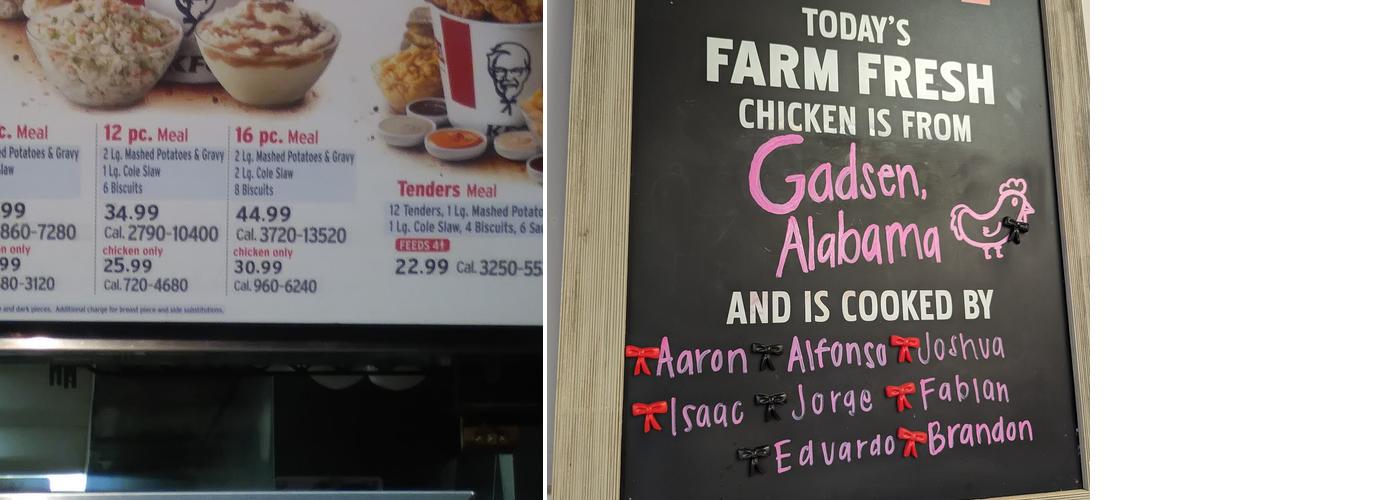 c. Meal
d Potatoes & Gravy
law
99
860-7280
n only
99
80-3120
12 pc. Meal
2 Lg. Mashed Potatoes & Gravy
1 Lg. Cole Slaw
6 Biscuits
34.99
Cal. 2790-10400
chicken only
25.99
Cal. 720-4680
16 pc. Meal
2 Lg. Mashed Potatoes & Gravy
2 Lg. Cole Slaw
8 Biscuits
44.99
Cal. 3720-13520
chicken only
30.99
Cal. 960-6240
KF
Tenders Meal
12 Tenders, 1 Lg. Mashed Potato
1 Lg. Cole Slaw, 4 Biscuits, 6 Sau
FEEDS 4
22.99 Cal. 3250-55
and dark pieces. Additional charge for breast piece and side substitutions.
TODAY'S
FARM FRESH
CHICKEN IS FROM
Gadsen,
Alabama
AND IS COOKED BY
Aaron Alfonso Joshua
Isaac Jorge Fabian
Edvardo Brandon